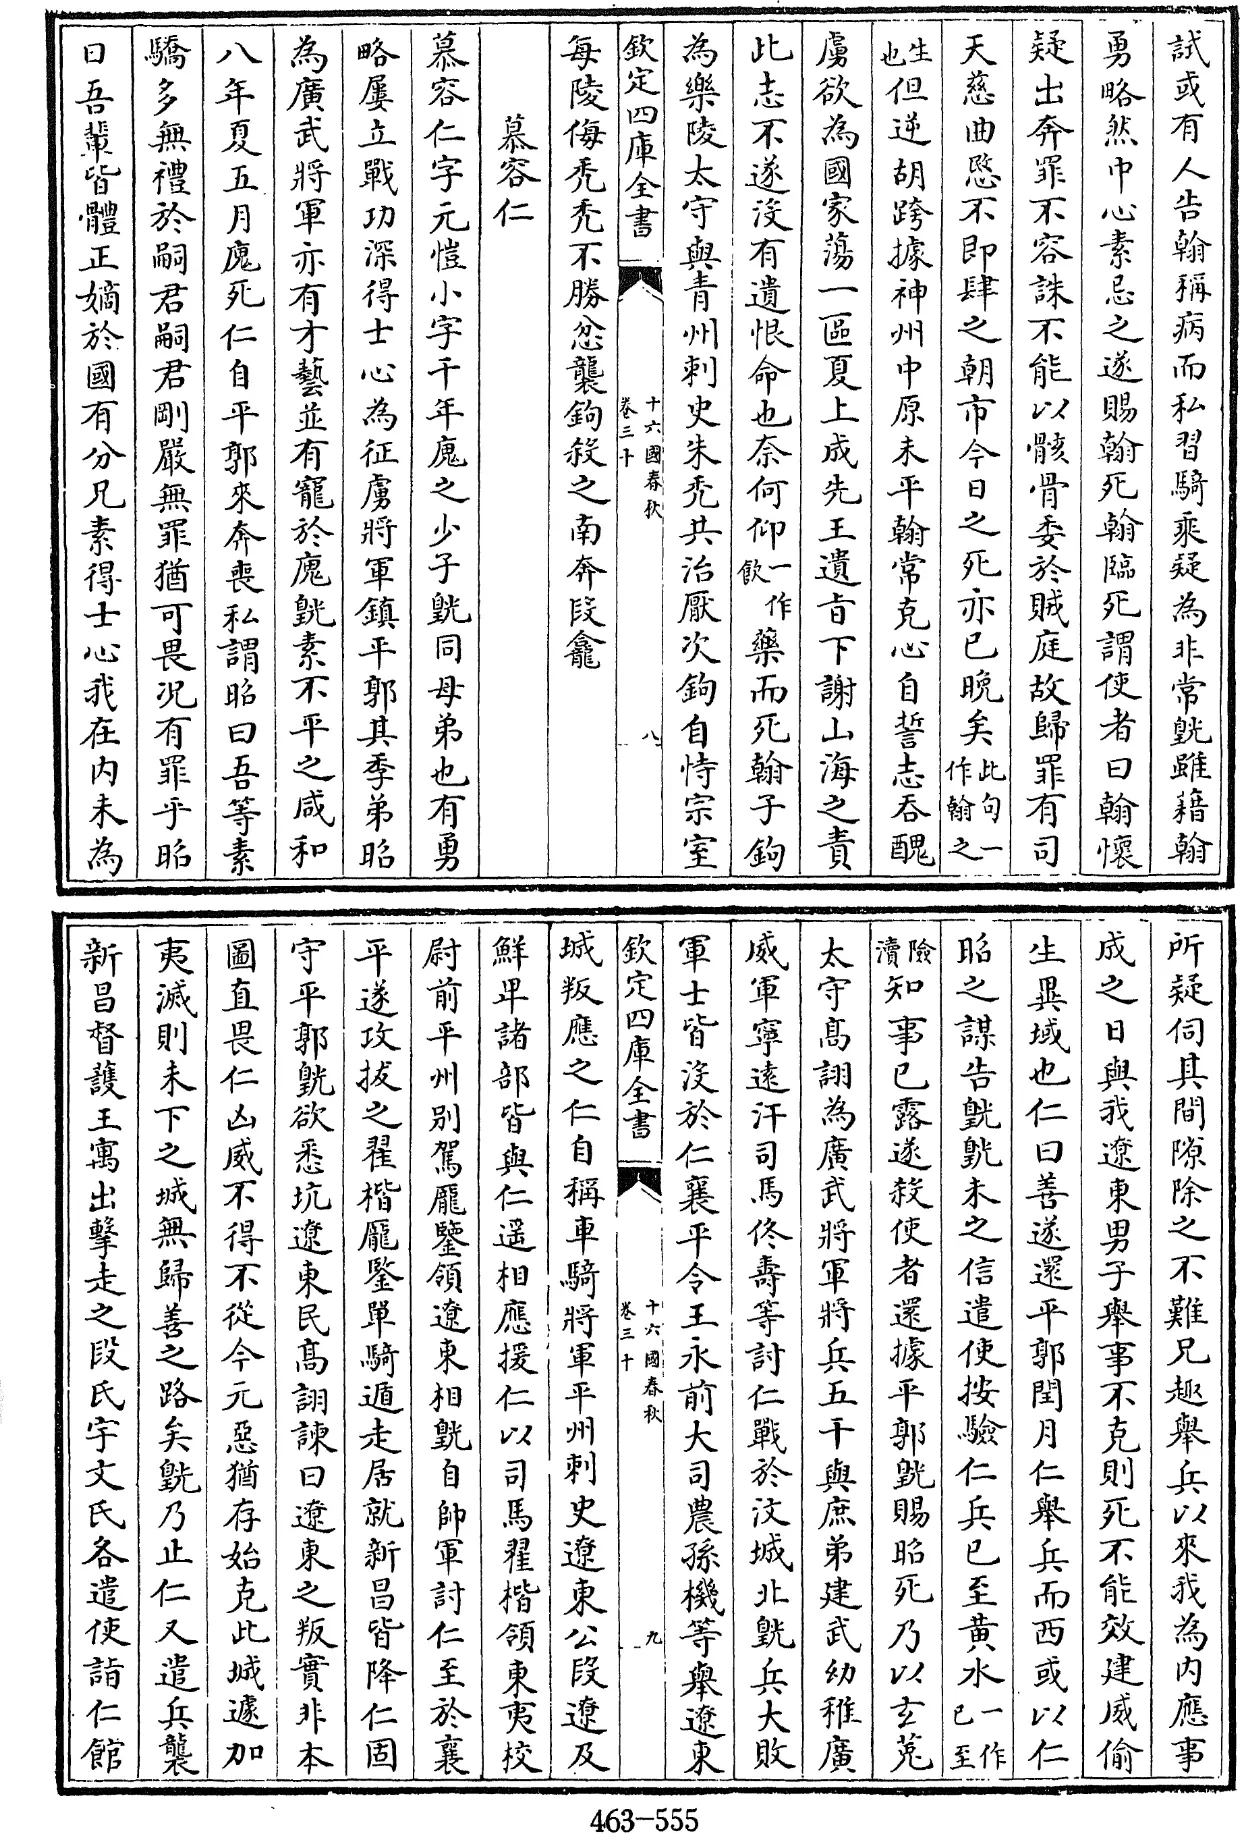 試或有人告翰稱病而私習騎乘疑為非常皝雖藉翰
勇略然中心素忌之遂賜翰死翰臨死謂使者曰翰懷
疑出奔罪不容誅不能以骸骨委於賊庭故歸罪有司
天慈曲愍不即肆之朝市今日之死亦已晚矣此句一作翰之
生也但逆胡跨據神州中原未平翰常克心自誓志吞醜
虜欲為國家蕩一區夏上成先王遺旨下謝山海之責
此志不遂沒有遺恨命也奈何仰一作飲藥而死翰子鉤
為樂陵太守與青州刺史朱禿共治厭次鉤自恃宗室
欽定四庫全書 十六國春秋 卷三十 八
每陵侮禿禿不勝忿襲鉤殺之南奔段龕
慕容仁
慕容仁字元愷小字千年廆之少子皝同母弟也有勇
略屢立戰功深得士心為征虜將軍鎮平郭其季弟昭
為廣武將軍亦有才藝並有寵於廆皝素不平之咸和
八年夏五月廆死仁自平郭來奔喪私謂昭曰吾等素
驕多無禮於嗣君嗣君剛嚴無罪猶可畏况有罪乎昭
曰吾輩皆體正嫡於國有分兄素得士心我在内未為
所疑伺其間隙除之不難兄趣舉兵以來我為内應事
成之日與我遼東男子舉事不克則死不能效建威偷
生異域也仁曰善遂還平郭閏月仁舉兵而西或以仁
昭之謀告皝皝未之信遣使按驗仁兵已至黃水一作已至
險瀆知事已露遂殺使者還據平郭皝賜昭死乃以玄菟
太守高詡為廣武將軍將兵五千與庶弟建武幼稚廣
威軍寧遠汗司馬佟壽等討仁戰於汶城北皝兵大敗
軍士皆沒於仁襄平令王永前大司農孫機等舉遼東
欽定四庫全書 十六國春秋 卷三十 九
城叛應之仁自稱車騎將軍平州刺史遼東公段遼及
鮮卑諸部皆與仁遥相應援仁以司馬翟楷領東夷校
尉前平州別駕龎鑒領遼東相皝自帥軍討仁至於襄
平遂攻拔之翟楷龎鑒單騎遁走居就新昌皆降仁固
守平郭皝欲悉坑遼東民高詡諫曰遼東之叛實非本
圖直畏仁凶威不得不從今元惡猶存始克此城遽加
夷滅則未下之城無歸善之路矣皝乃止仁又遣兵襲
新昌督護王寓出擊走之段氏宇文氏各遣使詣仁館
463-555